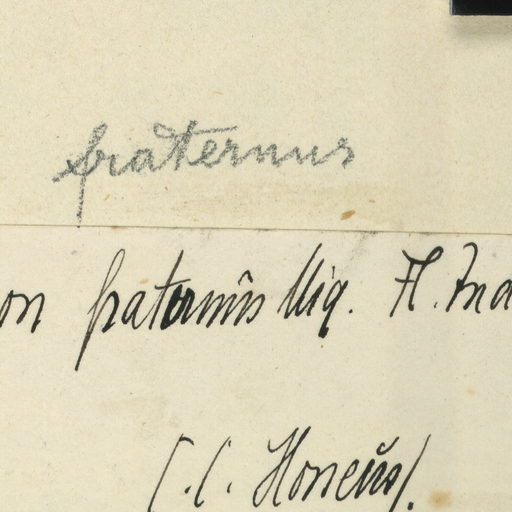 fraternus
on fraternus Miq. Fl. Ind